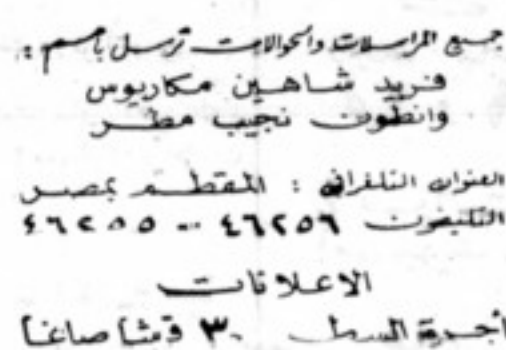 جميع المراسلات والحوالات ترسل باسم :
فريد شاهين مكاريوس
وانطون نجيب مطر
العنوان التلغرافى : المقطم بمصر
التليفون ٤٦٢٥٦ - ٤٦٢٥٥
الاعلانات
أجرة السطر ٣٠ قرشا صاغا